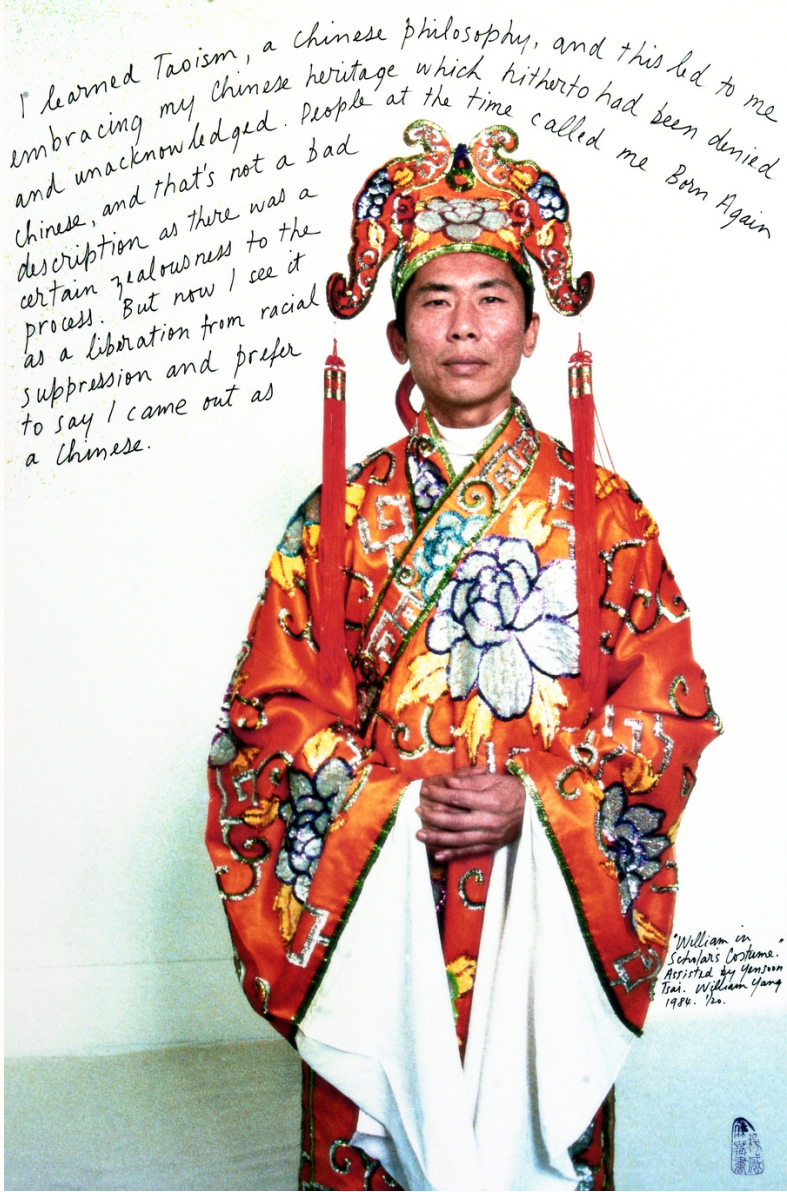 I learned Taoism, a Chinese philosophy, and this led to me
embracing my Chinese heritage which hitherto had been denied
and unacknowledged. People at the time called me Born Again
Chinese, and that's not a bad
description as there was a
certain zealousness to the
process. But now I see it
as a liberation from racial
suppression and prefer
to say I came out as
a Chinese.
"William in
Scholars Costume."
Assisted by Yensoon
Tsai. William Yang
1984. 1/20.